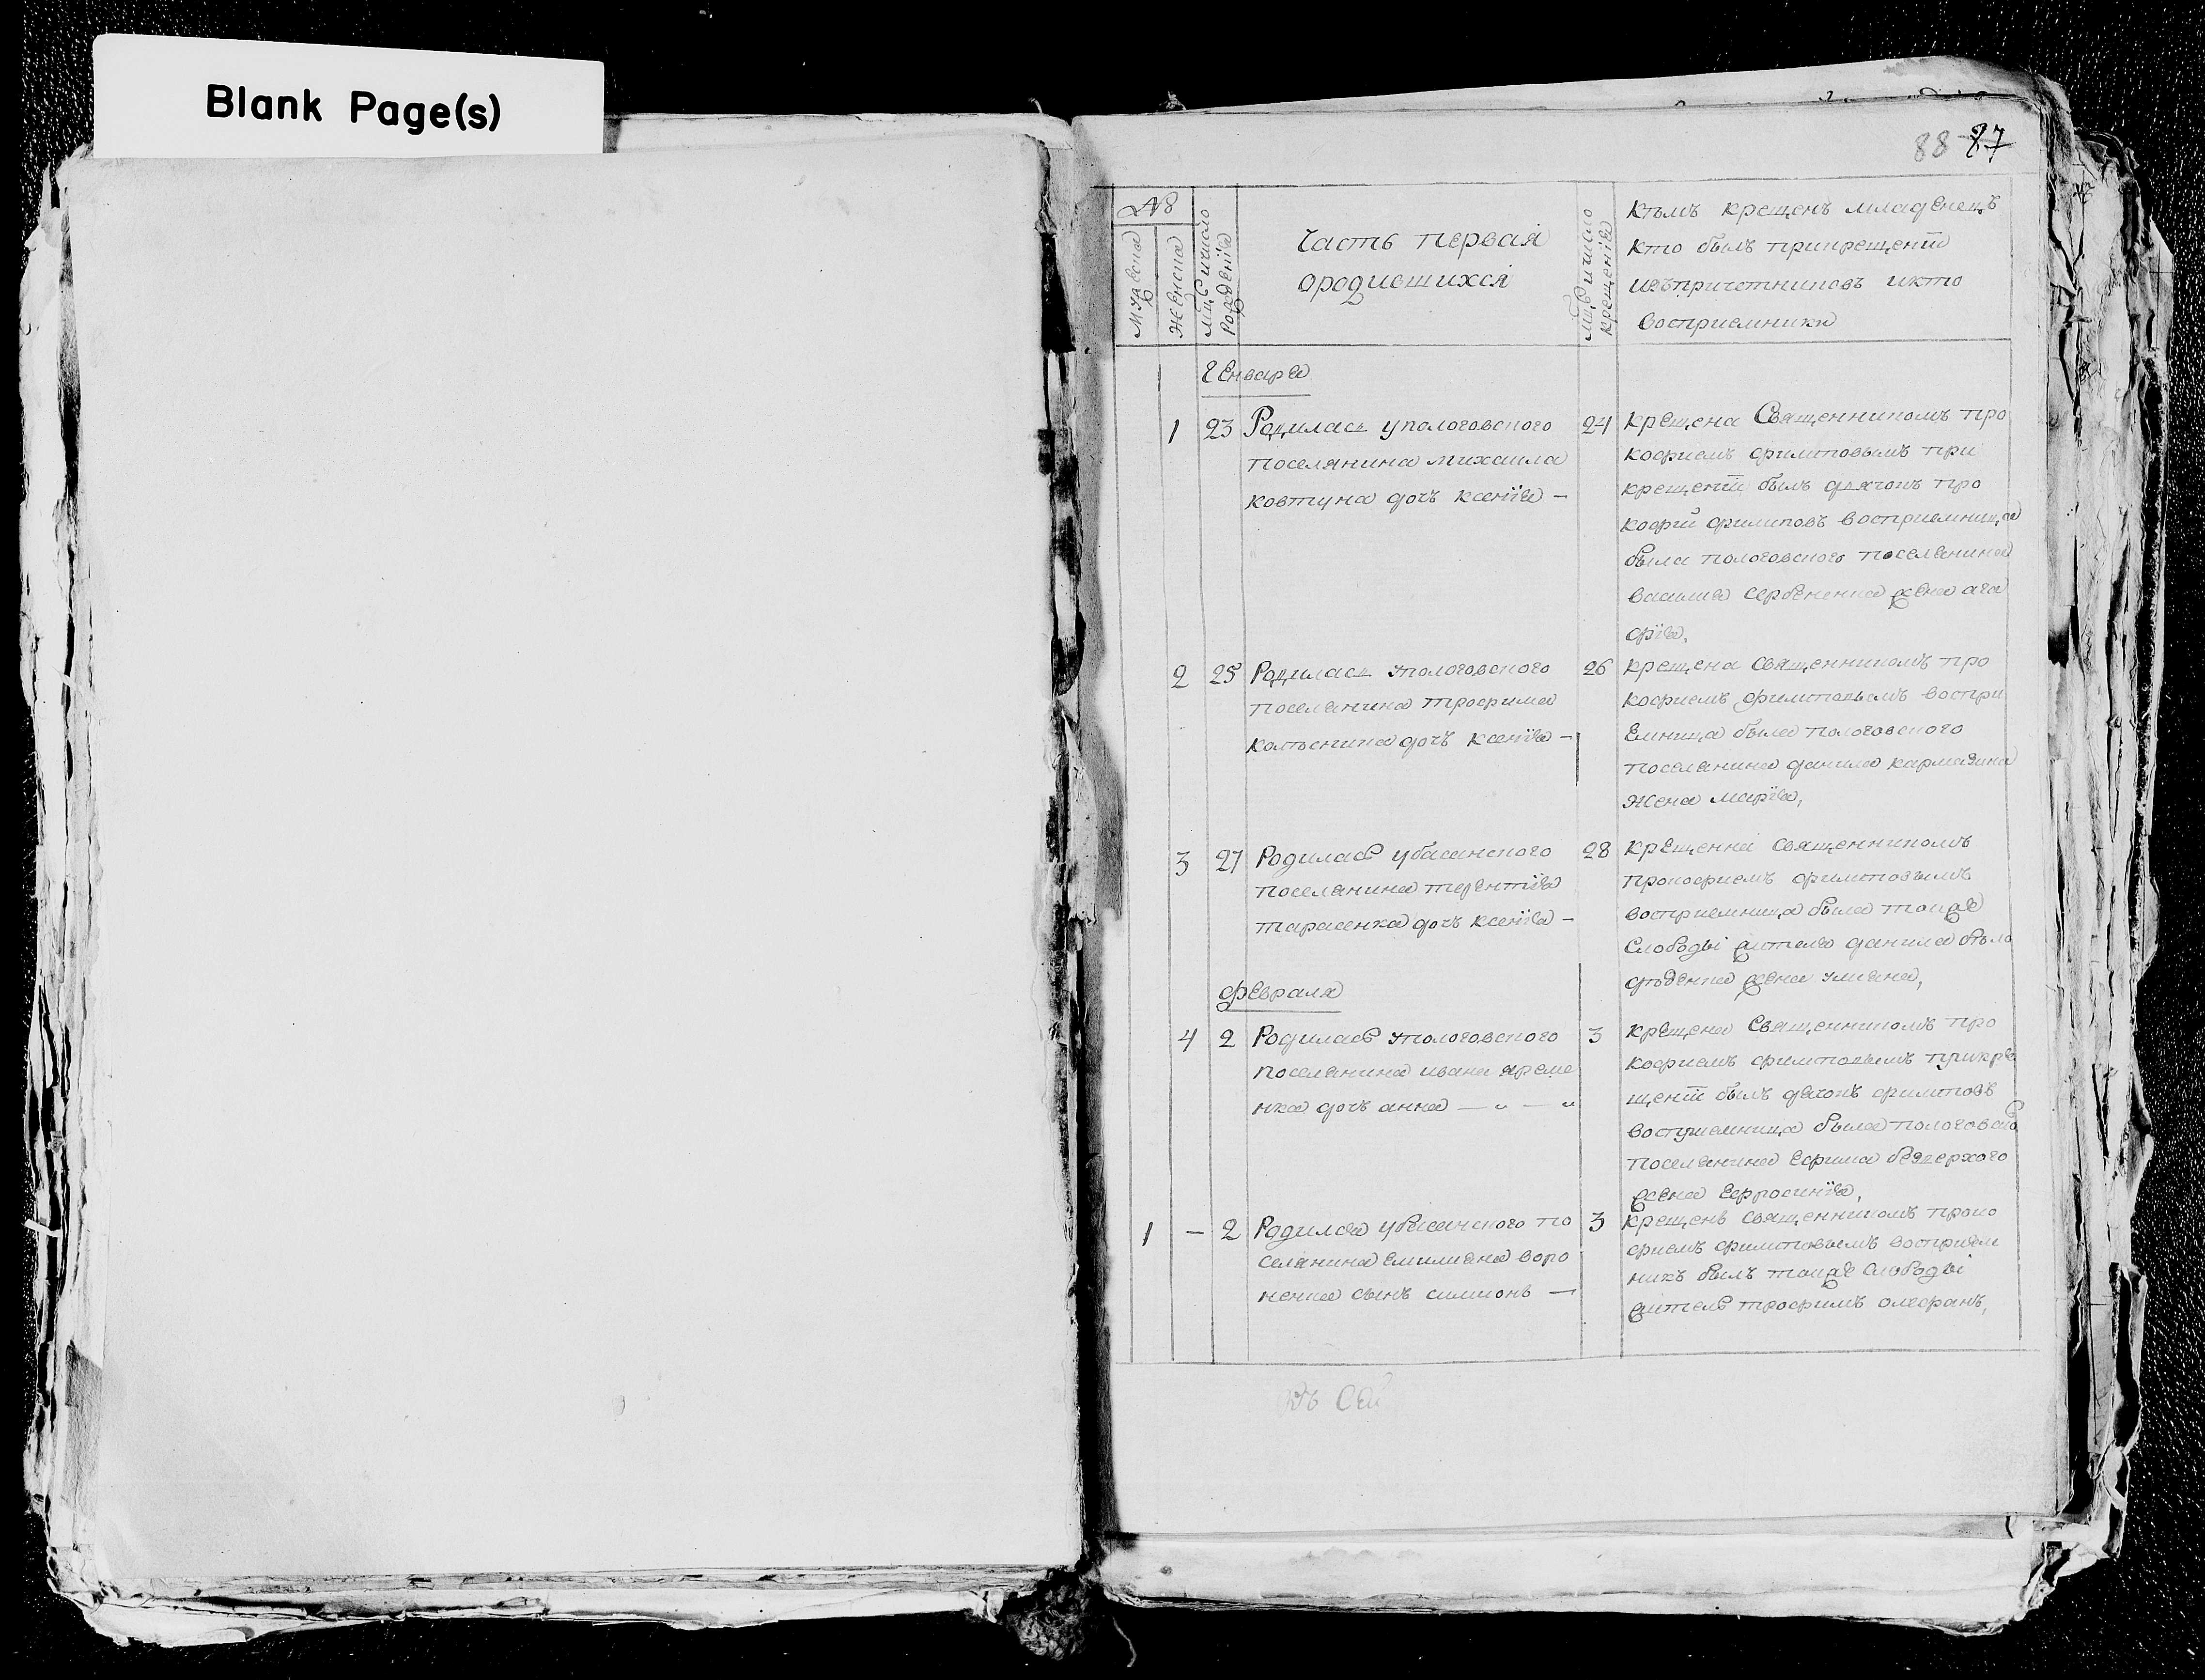 Blank Page(s)
88 87
№
Мужеска
Женска
Мцъ и число рожденїя
Часть первая
ородившихся
Мцъ и число крещенїя
Кѣмъ крещенъ младенецъ
кто былъ прикрещенїи
изъпричетниковъ икто
восприемники
Генваря
1 23 Родилась упологовского
поселянина михаила
ковтуна дочъ ксенїя —
24 крещена Священникомъ про
кофиемъ филиповымъ при
крещенїи былъ дячокъ про
кофий филиповъ восприемница
была пологовского поселянина
василия сербененка жена ага
фїя,
2 25 Родилась упологовского
поселянина трофима
колѣсника дочъ ксенїя —
26 крещена священникомъ про
кофиемъ филиповымъ воспри
емница была пологовского
поселянина данила кармазина
жена марїя,
3 27 Родилась убасанского
поселянина терентїя
тарасенка дочъ ксенїя —
28 крещенна священникомъ
прокофиемъ филиповымъ
восприемница была тоиже
слободы жителя данила бѣло
жена улияна,
февраля
4 2 Родилась упологовского
поселянина ивана яреме
нка дочъ анна — „ — „
3 крещена Священникомъ про
кофиемъ филиповымъ прикре
щенїи былъ дячокъ филиповъ
восприемница была пологовского
поселянина ефима
жена ефросинїя,
1 — 2 Родился убасанского по
селянина емилияна воро
ненка сынъ симионъ —
3 крещенъ священникомъ проко
фиемъ филиповымъ восприем
никъ былъ тоиже слободы
житель трофимъ олефанъ,